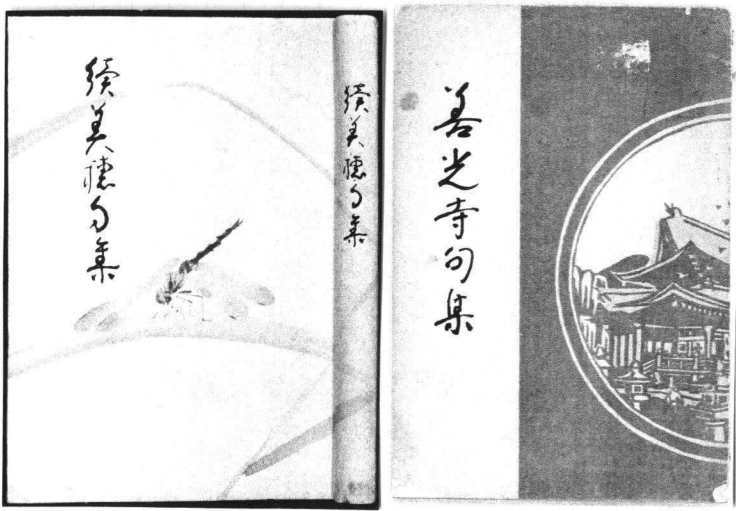 續美穂句集
續美穂句集
善光寺句集